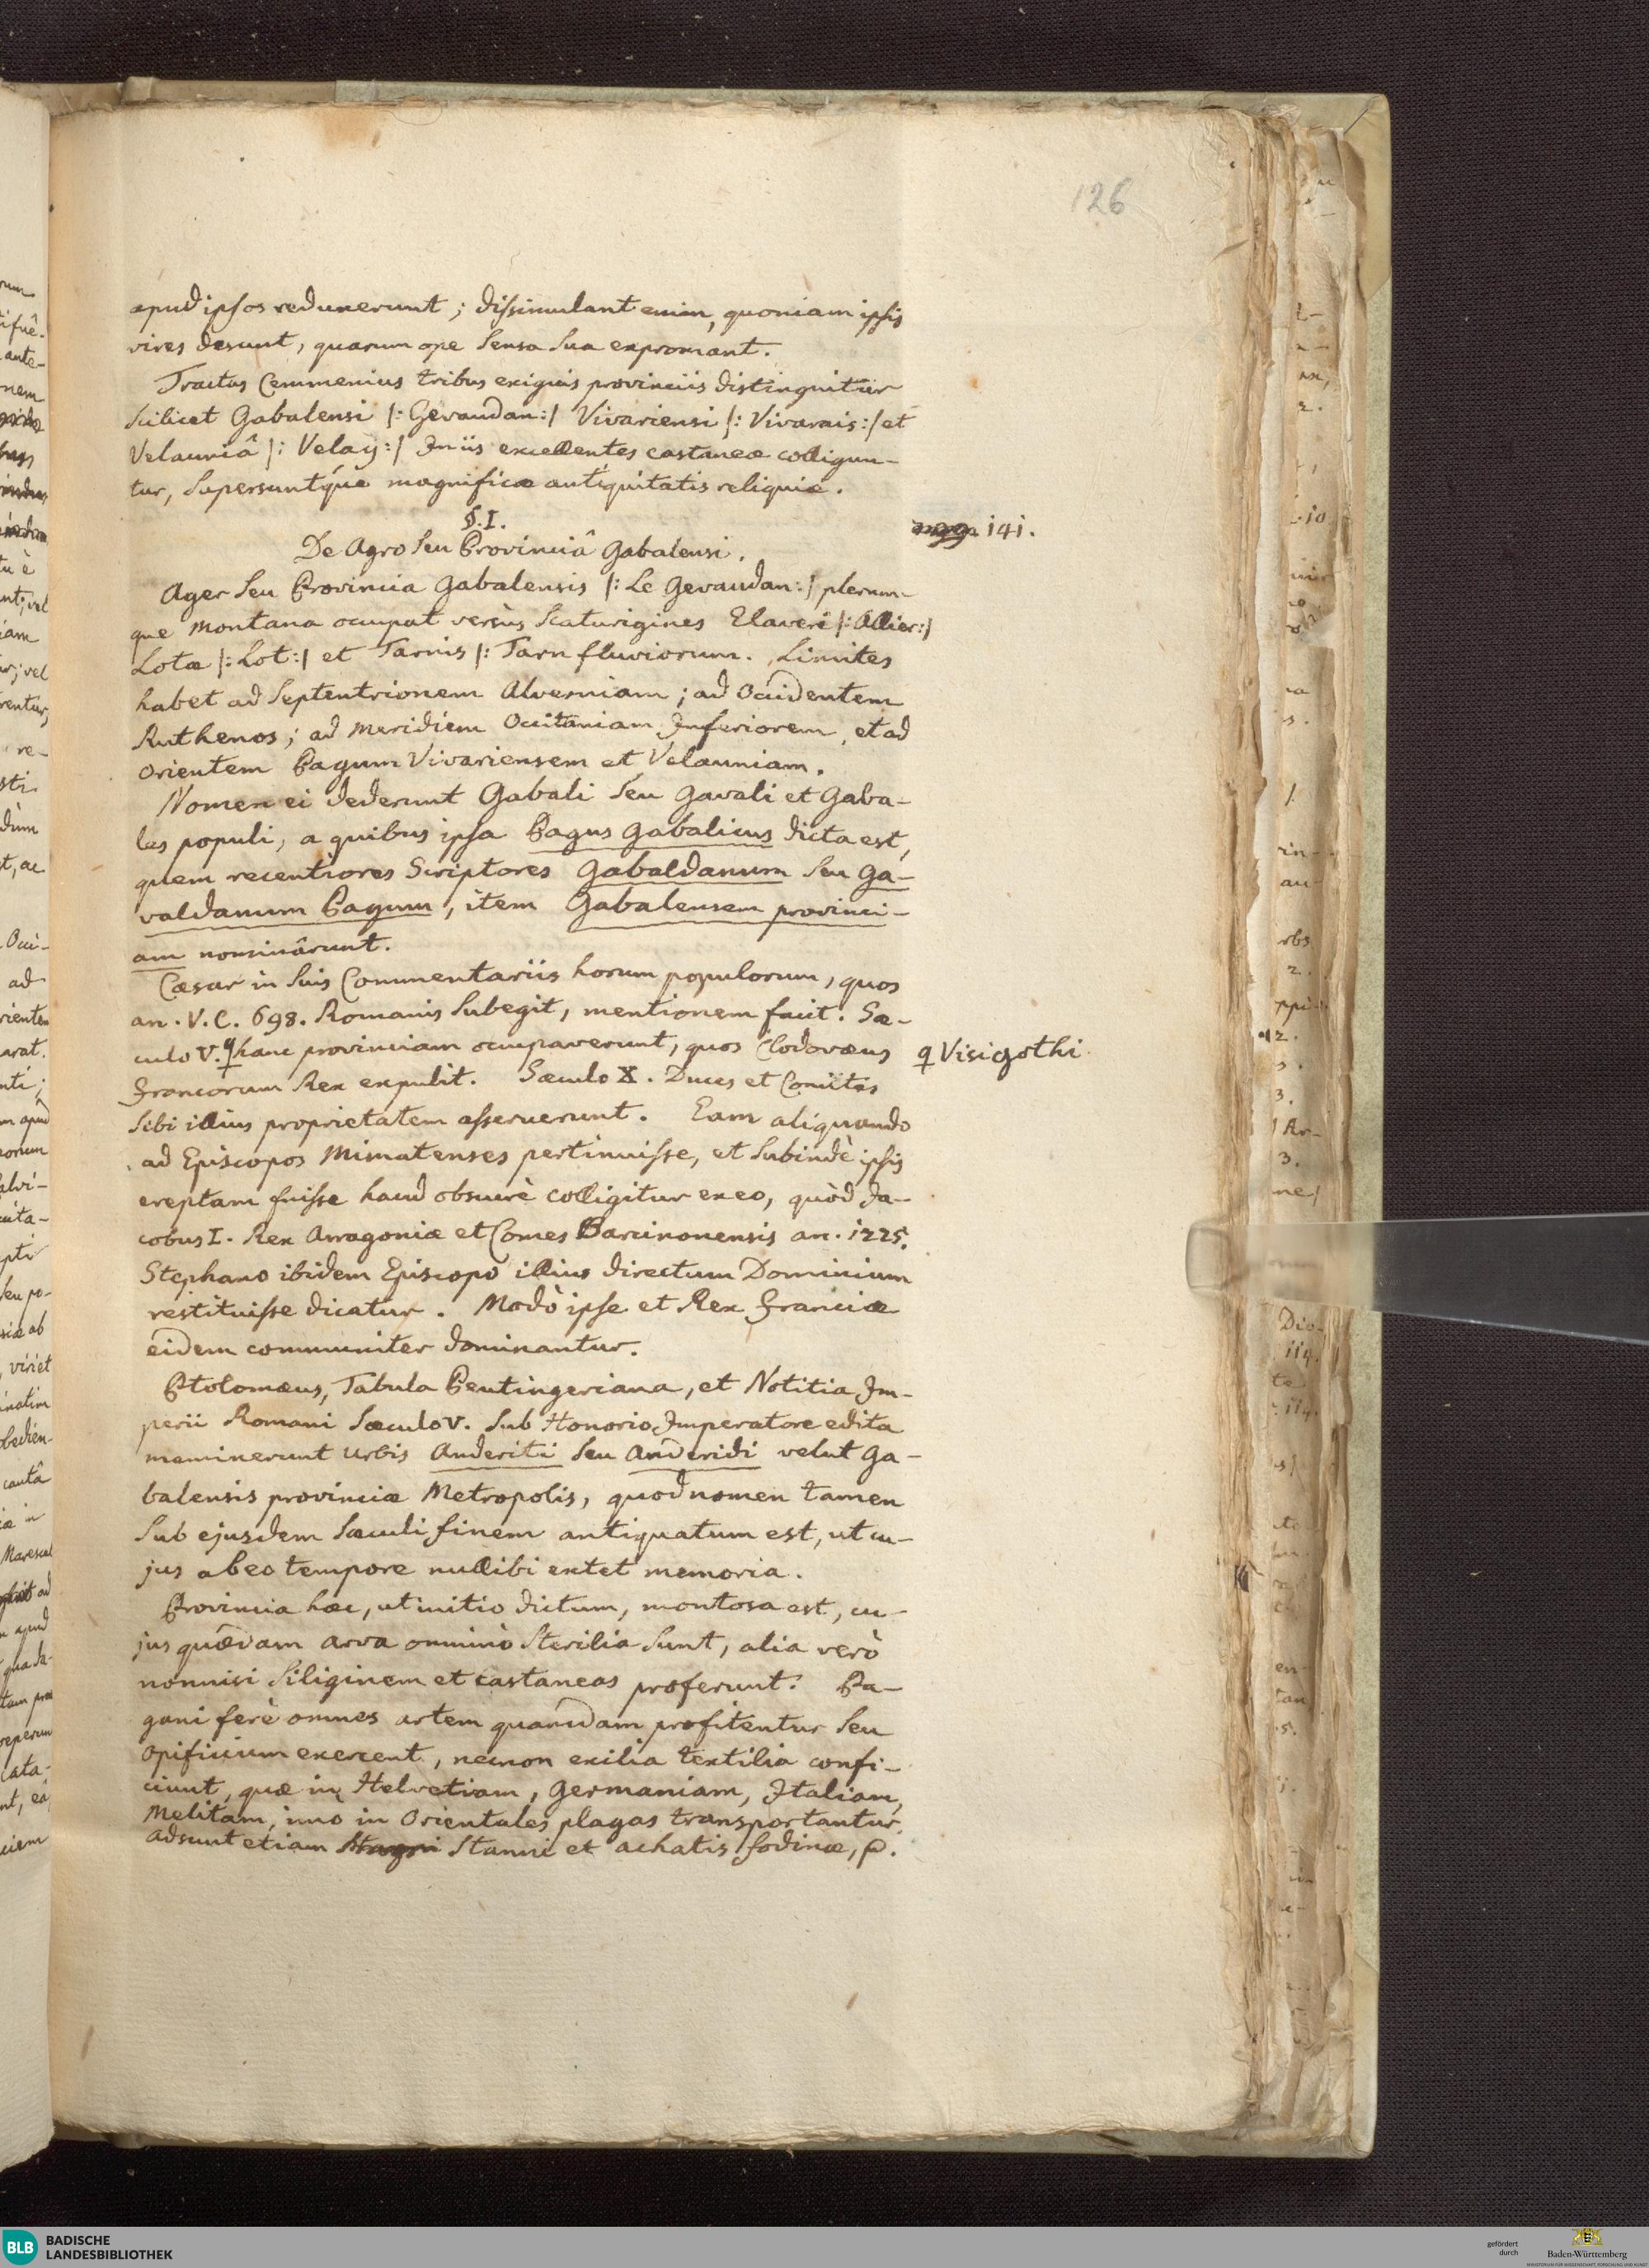 126
apud ipsos reduxerunt; dissimulant enim, quoniam ipsis
vires desunt, quarum ope sensa sua expromant.
Tractus Cemmenius tribus exiguis provinciis distinguitur
scilicet Gabalensi |: Gevaudan:| Vivariensi |: Vivarais:| et
Velauniâ |: Velay:| In iis excellentes castaneæ colligun-
tur, supersuntque magnificæ antiquitatis reliquiæ.
§. I.
141.
De Agro seu Provinciâ Gabalensi.
Ager seu Provincia Gabalensis |: Le Gevaudan:| plerum-
que montana occupat versùs scaturigines Elaveri |: Allier:|
Lotæ |: Lot:| et Tarnis |: Tarn fluviorum. Limites
habet ad Septentrionem Alverniam; ad Occidentem
Ruthenos; ad Meridiem Occitaniam Inferiorem, et ad
Orientem Pagum Vivariensem et Velauniam.
Nomen ei dederunt Gabali seu Gavali et Gaba-
les populi, a quibus ipsa Pagus Gabalicus dicta est,
quem recentiores Scriptores Gabaldanum seu Ga-
valdanum Pagum, item Gabalensem provinci-
am nominârunt.
Cæsar in suis Commentariis horum populorum, quos
an. V. C. 698. Romanis subegit, mentionem facit. Sæ-
culo V. hanc provinciam occupaverunt, quos Clodovæus
Visigothi
Francorum Rex expulit. Sæculo X. Duces et Comites
sibi illius proprietatem asseruerunt. Eam aliquando
ad Episcopos Mimatenses pertinuisse, et subindè ipsis
ereptam fuisse haud obscurè colligitur ex eo, quòd Ja-
cobus I. Rex Arragoniæ et Comes Barcinonensis an. 1225.
Stephano ibidem Episcopo illius directum Dominium
restituisse dicatur. Modò ipse et Rex Franciæ
eidem communiter dominantur.
Ptolomæus, Tabula Peutingeriana, et Notitia Im-
perii Romani Sæculo V. sub Honorio Imperatore edita
meminerunt Urbis Anderiti seu Anderidi velut Ga-
balensis provinciæ Metropolis, quod nomen tamen
sub ejusdem sæculi finem antiquatum est, ut cu-
jus ab eo tempore nullibi extet memoria.
Provincia hæc, ut initio dictum, montosa est, cu-
jus quædam arva omninò sterilia sunt, alia verò
nonnisi siliginem et castaneas proferunt. Pa-
gani ferè omnes artem quamdam profitentur seu
opificium exercent, necnon exilia textilia confi-
ciunt, quæ in Helvetiam, Germaniam, Italiam,
Melitam, imo in Orientales plagas transportantur.
Adsunt etiam Stanni et achatis fodinæ,
BLB BADISCHE
LANDESBIBLIOTHEK
gefördert
durch
Baden-Württemberg